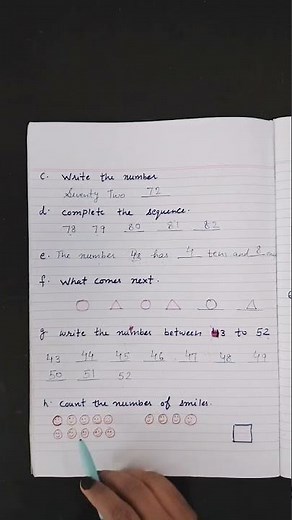 c. Write the number
Seventy Two 72
d. Complete the sequence.
78 79 80 81 82
e. The number 48 has 4 tens and 8
f. What comes next.
g Write the number between 43 to 52
43 44 45 46 47 48 49
50 51 52
h. Count the number of smiles.